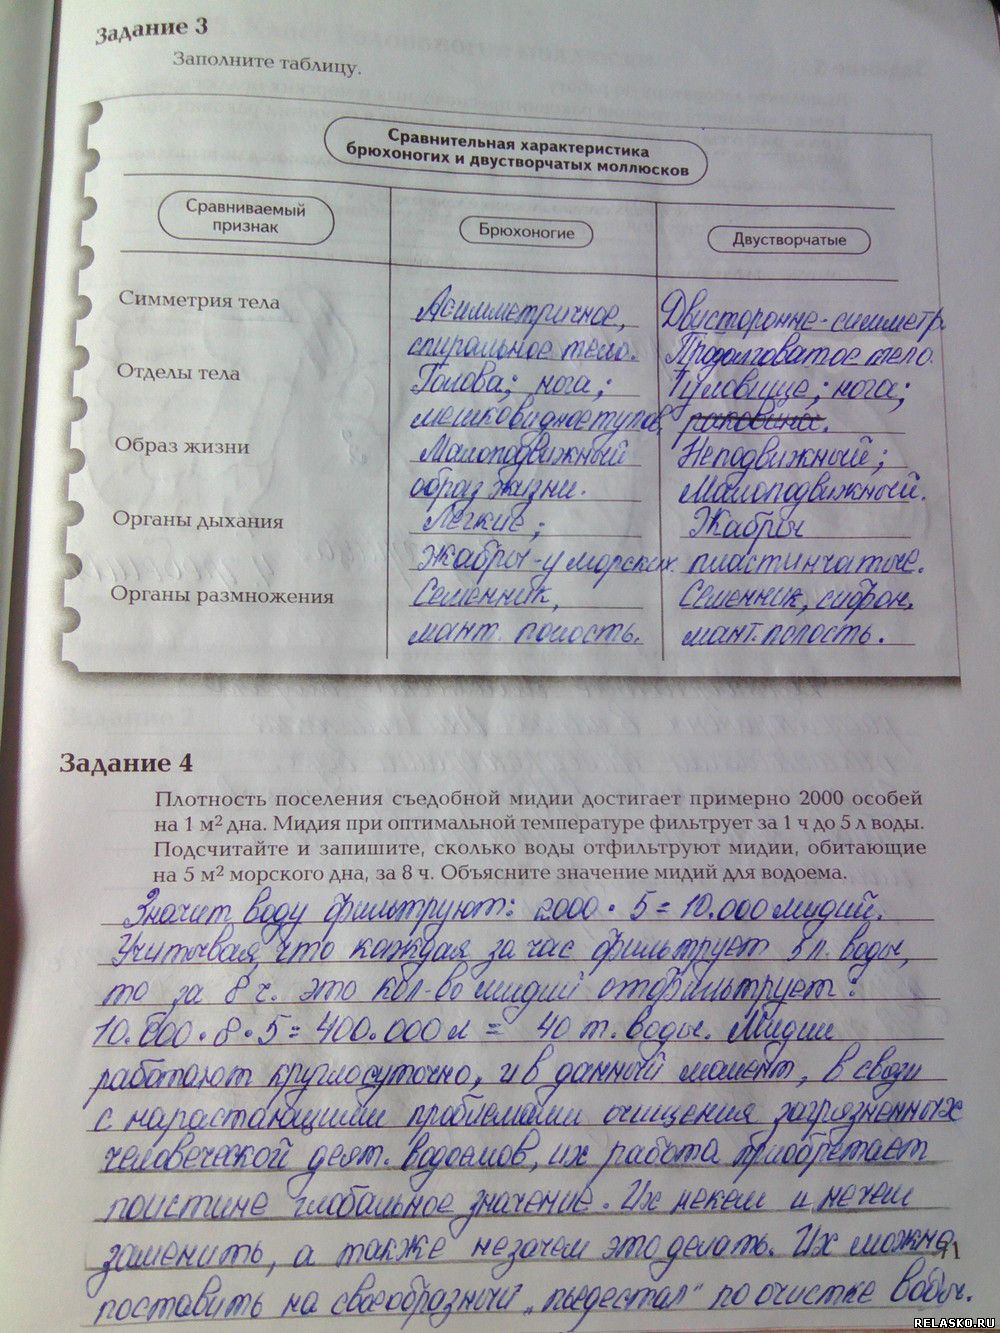 Задание 3
Заполните таблицу.
Сравнительная характеристика
брюхоногих и двустворчатых моллюсков
Сравниваемый
признак
Брюхоногие
Двустворчатые
Симметрия тела
Асимметричное,
спиральное тело.
Двусторонне-симметр.
Продолговатое тело.
Отделы тела
Голова; нога;
мешковидное тулов.
Туловище; нога;
раковина.
Образ жизни
Малоподвижный
образ жизни.
Неподвижный;
Малоподвижный.
Органы дыхания
Легкие;
Жабры-у морских.
Жабры
пластинчатые.
Органы размножения
Семенник,
мант. полость.
Семенник, сифон,
мант.полость.
Задание 4
Плотность поселения съедобной мидии достигает примерно 2000 особей
на 1 м² дна. Мидия при оптимальной температуре фильтрует за 1 ч до 5 л воды.
Подсчитайте и запишите, сколько воды отфильтруют мидии, обитающие
на 5 м² морского дна, за 8 ч. Объясните значение мидий для водоема.
Значит воду фильтруют: 2000 · 5 = 10.000 мидий.
Учитывая, что каждая за час фильтрует 5 л. воды,
то за 8 ч. это кол-во мидий отфильтрует:
10.000 · 8 · 5 = 400.000 л = 40 т. воды. Мидии
работают круглосуточно, и в данный момент, в связи
с нарастающими проблемами очищения загрязненных
человеческой деят. водоемов, их работа приобретает
поистине глобальное значение. Их некем и нечем
заменить, а также незачем это делать. Их можно
поставить на своеобразный „пьедестал" по очистке воды.
RELASKO.RU